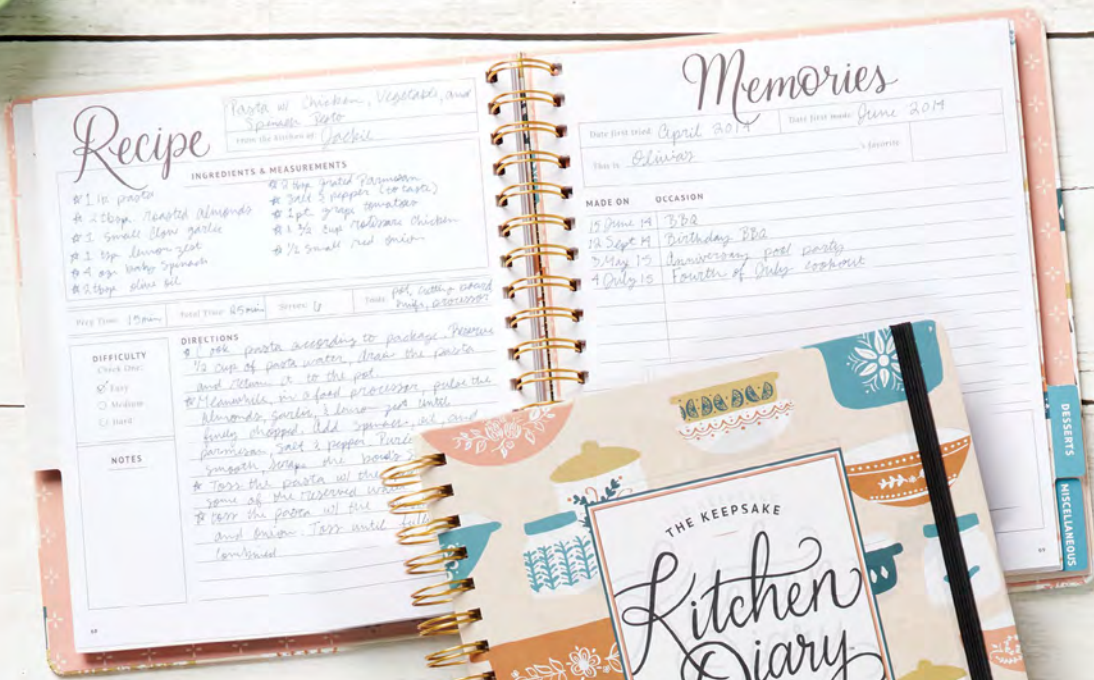 Recipe
Pasta w/ Chicken, Vegetable, and
Spinach Pesto
From the kitchen of: Jackie
INGREDIENTS & MEASUREMENTS
1 lb pasta
2 tbsp roasted almonds
1 small clove garlic
1 tsp lemon zest
4 ozs baby spinach
2 tbsp olive oil
2 tbsp grated Parmesan
Salt & pepper (to taste)
1 pt. grape tomatoes
1 1/2 cup rotisserie chicken
1/2 small red onion
Prep Time: 15min Total Time: 25min Serves: Tools: pot, cutting board
knife, processor
DIFFICULTY
Check One:
Easy
Medium
Hard
NOTES
DIRECTIONS
Cook pasta according to package. Reserve
1/2 cup of pasta water, drain the pasta
and return it to the pot.
Meanwhile, in a food processor, pulse the
almonds, garlic, & lemon zest until
finely chopped. Add spinach, oil, and
parmesan, salt & pepper.
smooth, scrape the bowl's
Toss the pasta w/ the
some of the reserved
toss the pasta w/ the
and onion. Toss until
combined
Memories
Date first tried: April 2014 Date first made: June 2014
This is Olivia's 's favorite
MADE ON OCCASION
15 June 14 BBQ
12 Sept 14 Birthday BBQ
3 May 15 Anniversary pool party
4 July 15 Fourth of July cookout
DESSERTS
MISCELLANEOUS
THE KEEPSAKE
Kitchen
Diary